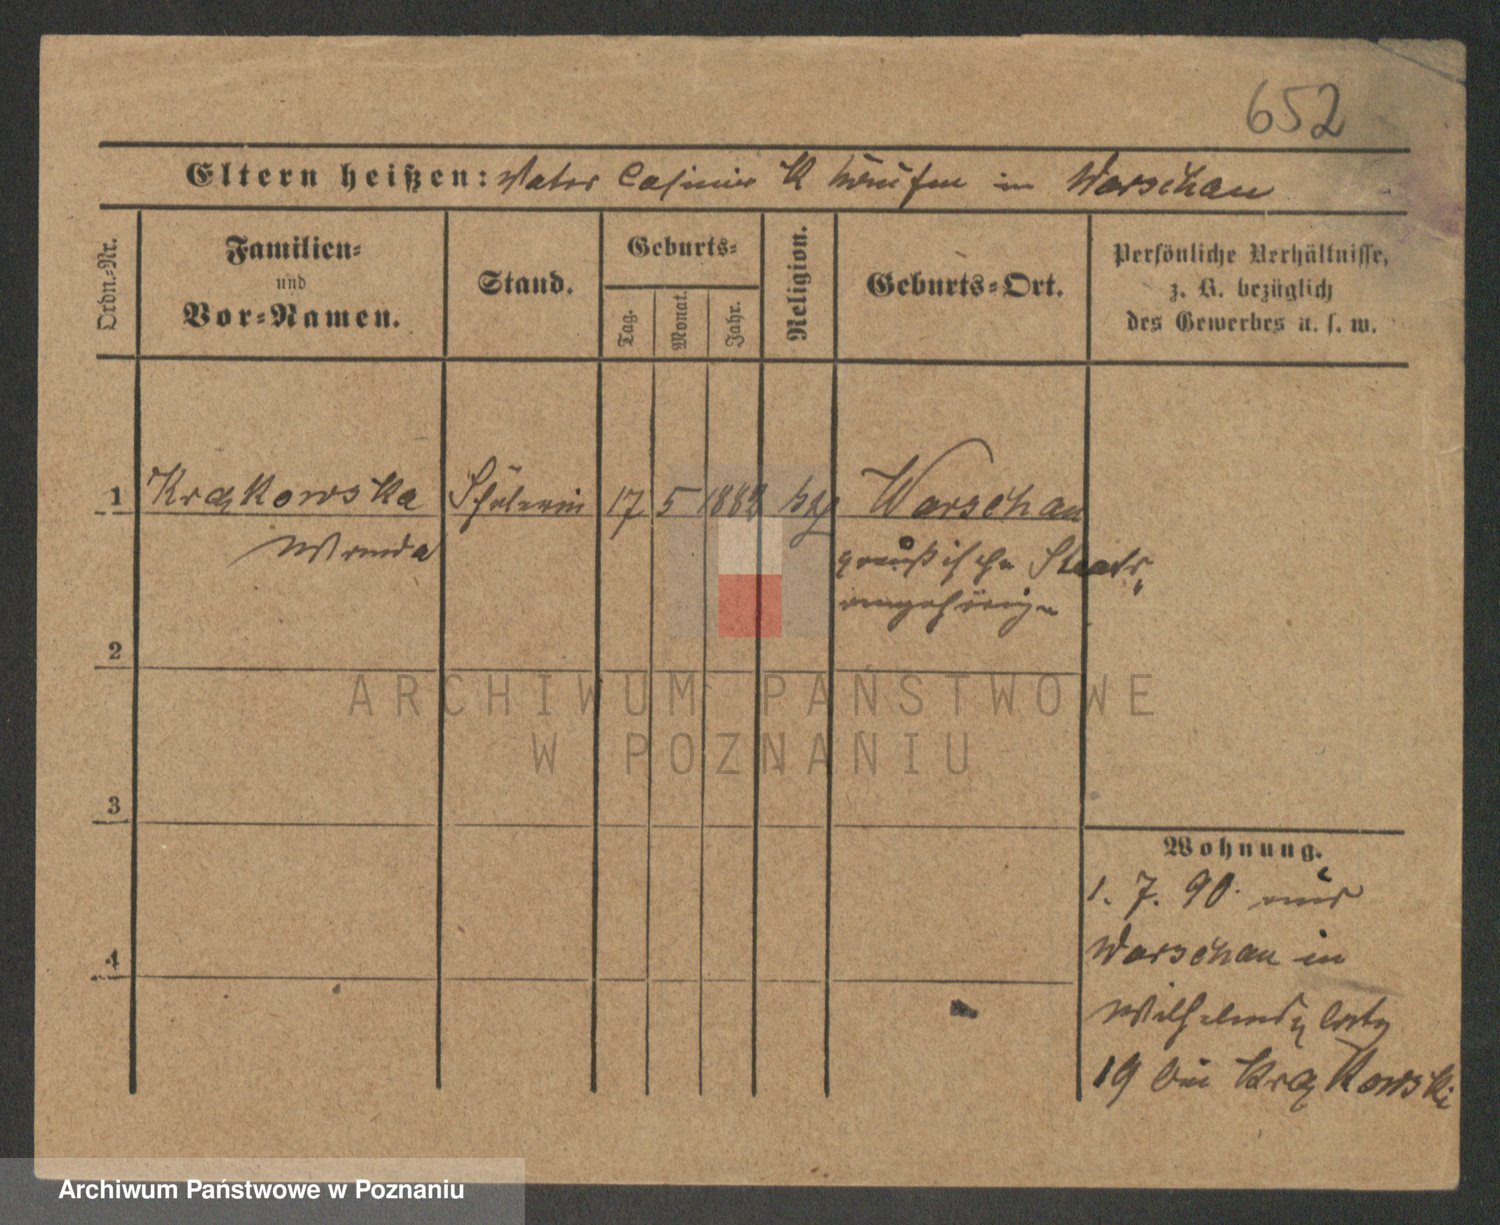 652
Eltern heißen: Vater Casimir K Kaufm in Warschau
Ordn.-Nr.
Familien-
und
Vor-Namen.
Stand.
Geburts-
Tag.
Monat.
Jahr.
Religion.
Geburts-Ort.
Persönliche Verhältnisse,
z. B. bezüglich
des Gewerbes u. s. w.
1 Krąkowska Schülerin 17 5 1882 Warschau
Wanda
preußische Staats-
angehörige
2
3
4
Wohnung.
1. 7. 90 aus
Warschau in
Wilhelmsplatz
19 bei Krąkowski
ARCHIWUM PAŃSTWOWE
W POZNANIU
Archiwum Państwowe w Poznaniu